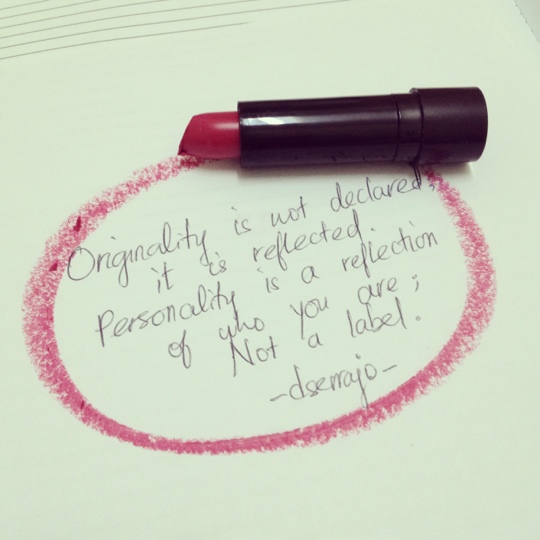 Originality is not declared;
it is reflected.
Personality is a reflection
of who you are;
Not a label.
-dserrajo-